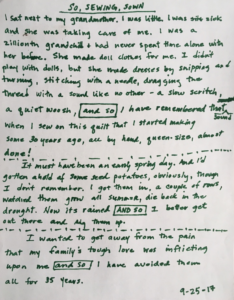 SO, SEWING, SOWN
I sat next to my grandmother. I was little. I was six sick
and she was taking care of me. I was a
zillionth grandchild & had never spent time alone with
her before. She made doll clothes for me. I didn't
play with dolls, but she made dresses by snipping and
turning, stitching with a needle, dragging the
thread with a sound like no other - a slow scritch,
a quiet woosh, and so I have remembered that sound
when I sew on this quilt that I started making
some 30 years ago, all by hand, queen-size, almost
done!
It must have been an early spring day. And I'd
gotten ahold of some seed potatoes, obviously, though
I don't remember. I got them in, a couple of rows,
watched them grow all summer, die back in the
drought. Now it's rained AND SO I better get
out there and dig them up.
I wanted to get away from the pain
that my family's tough love was inflicting
upon me and so I have avoided them
all for 35 years.
9-25-17